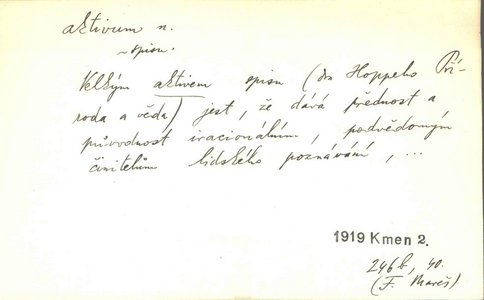 aktivum n.
~ spisu.
Velkým aktivem spisu (dra Hoppeho Pří-
roda a věda) jest, že dává přednost a
původnost iracionálním, podvědomým
činitelům lidského poznávání, ...
1919 Kmen 2.
246b, 40.
(F. Mareš)